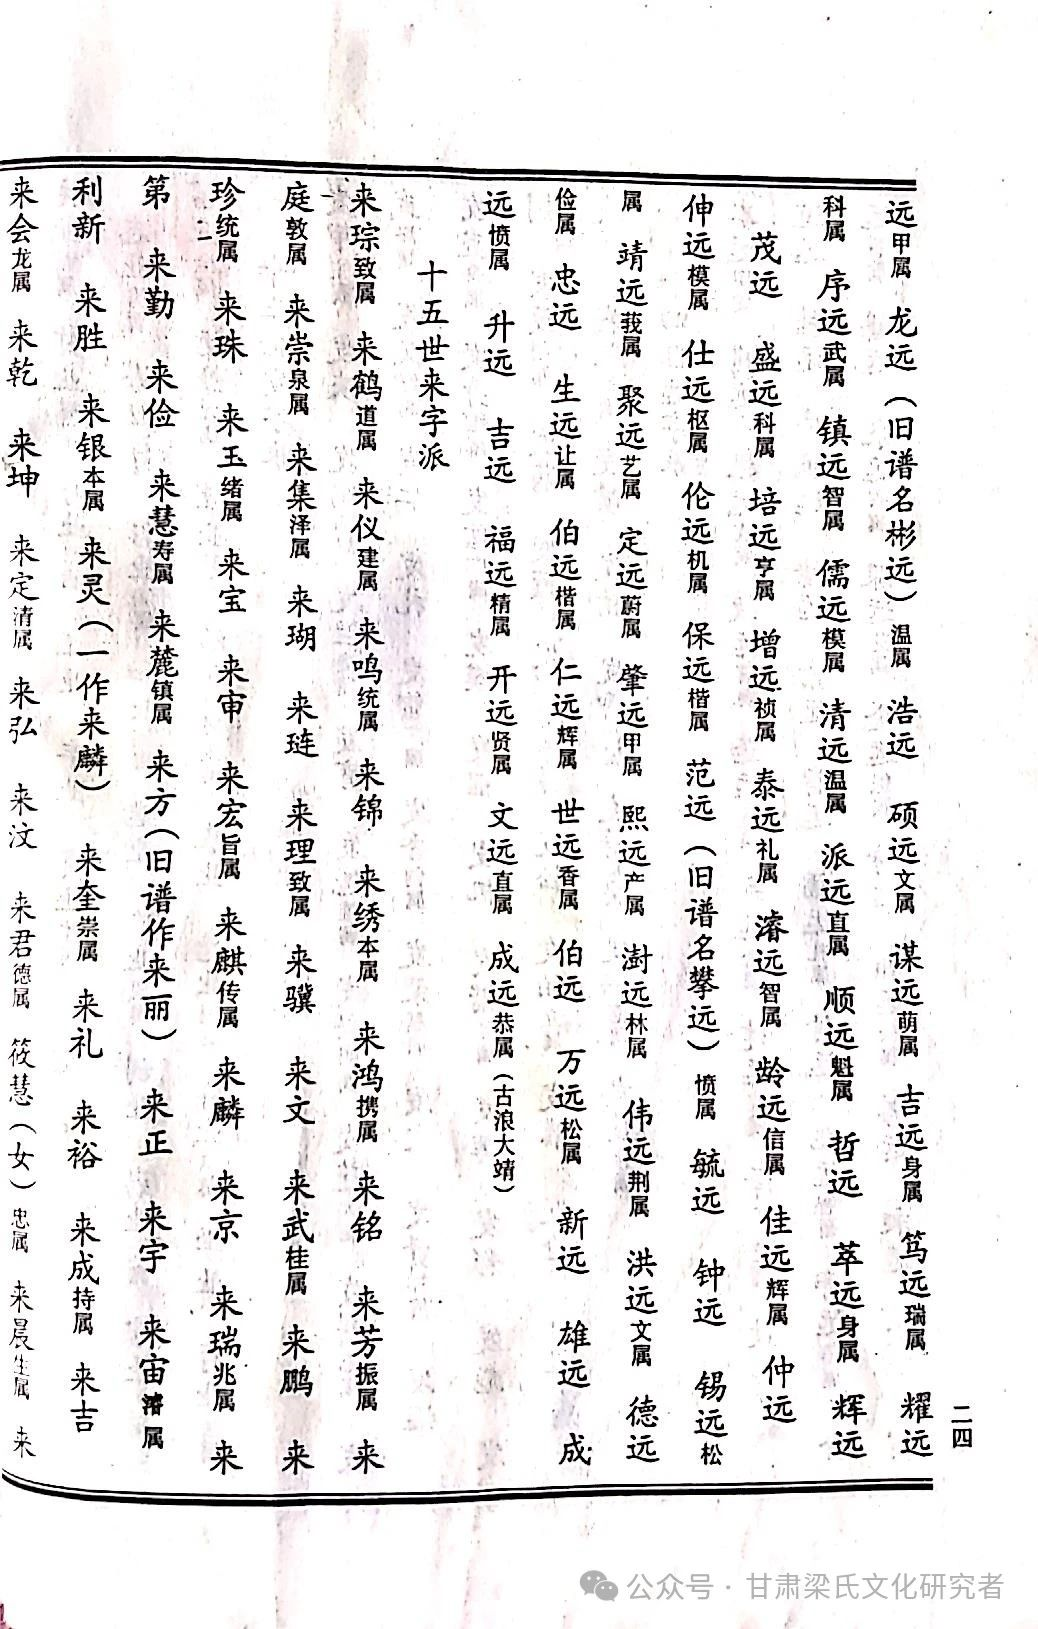 二四
远甲属 龙远（旧谱名彬远）温属 浩远 硕远文属 谋远萌属 吉远身属 笃远瑞属 耀远
科属 序远武属 镇远智属 儒远模属 清远温属 派远直属 顺远魁属 哲远 萃远身属 辉远
茂远 盛远科属 培远亨属 增远祯属 泰远礼属 濬远智属 龄远信属 佳远辉属 仲远
伸远模属 仕远枢属 伦远机属 保远楷属 范远（旧谱名攀远）愤属 毓远 钟远 锡远松
属 靖远莪属 聚远艺属 定远蔚属 肇远甲属 熙远产属 澍远林属 伟远荆属 洪远文属 德远
俭属 忠远 生远让属 伯远楷属 仁远辉属 世远香属 伯远 万远松属 新远 雄远 成
远愤属 升远 吉远 福远精属 开远贤属 文远直属 成远恭属（古浪大靖）
十五世来字派
来琮致属 来鹤道属 来仪建属 来鸣统属 来锦 来绣本属 来鸿携属 来铭 来芳振属 来
庭敦属 来崇泉属 来集泽属 来瑚 来琏 来理致属 来骥 来文 来武桂属 来鹏 来
珍统属 来珠 来玉绪属 来宝 来审 来宏旨属 来麒传属 来麟 来京 来瑞兆属 来
第 来勤 来俭 来慧寿属 来麓镇属 来方（旧谱作来丽） 来正 来宇 来宙濬属
利新 来胜 来银本属 来灵（一作来麟） 来奎崇属 来礼 来裕 来成持属 来吉
来会龙属 来乾 来坤 来定清属 来弘 来汶 来君德属 筱慧（女）忠属 来晨生属 来
公众号·甘肃梁氏文化研究者